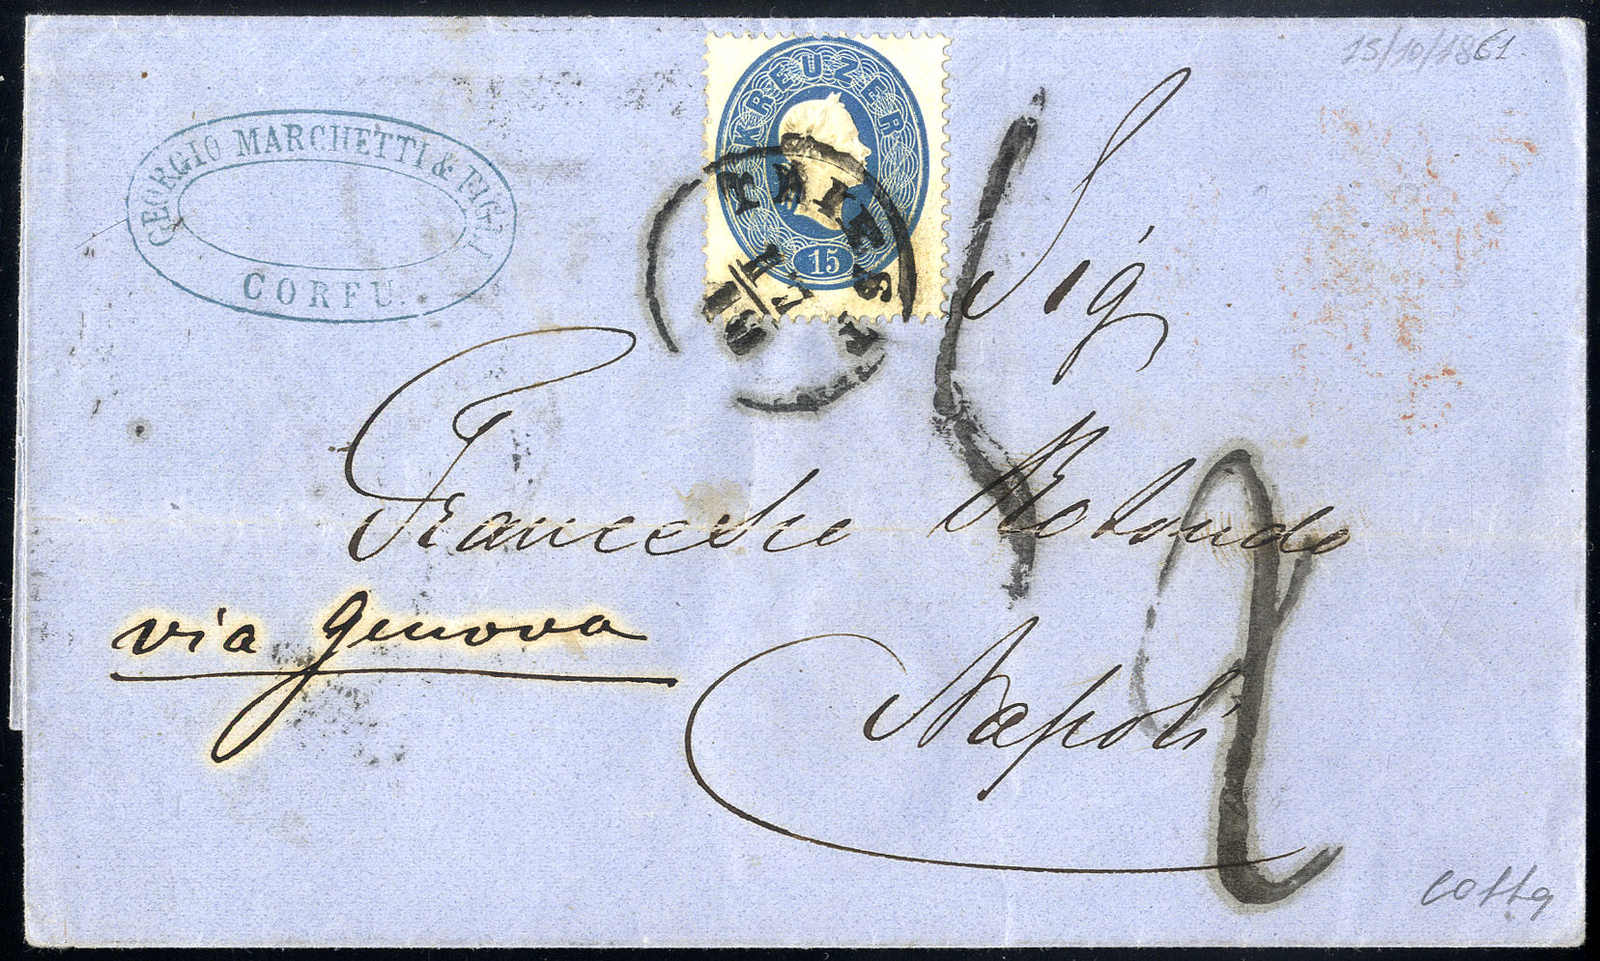 15/10/1861
GEORGIO MARCHETTI & FIGLI
CORFU.
KREUZER
15
TRIEST
17
10
Sig
Francesco Rotondo
via Genova
Napoli
2